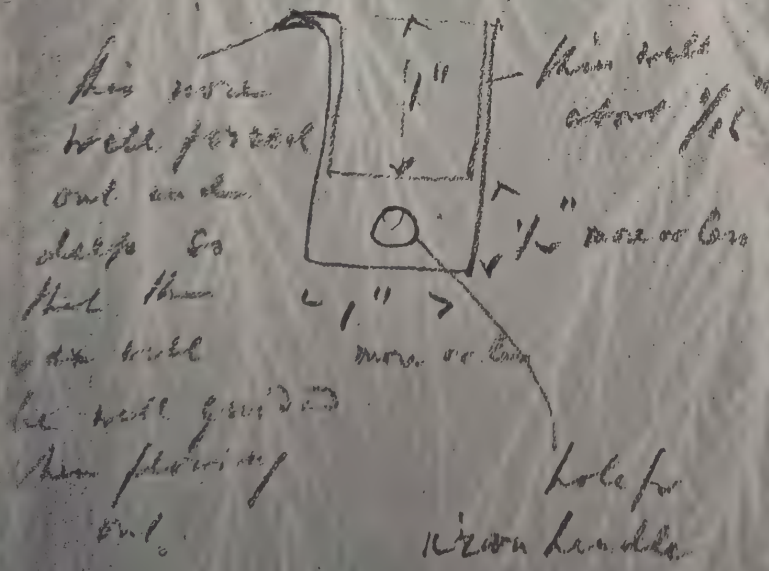 this nose
well formed
out and
deep so
that the
wax will
be well guided
when pouring
out.
1"
thin walls
about 1/16"
1/2" more or less
1"
more or less
hole for
handle